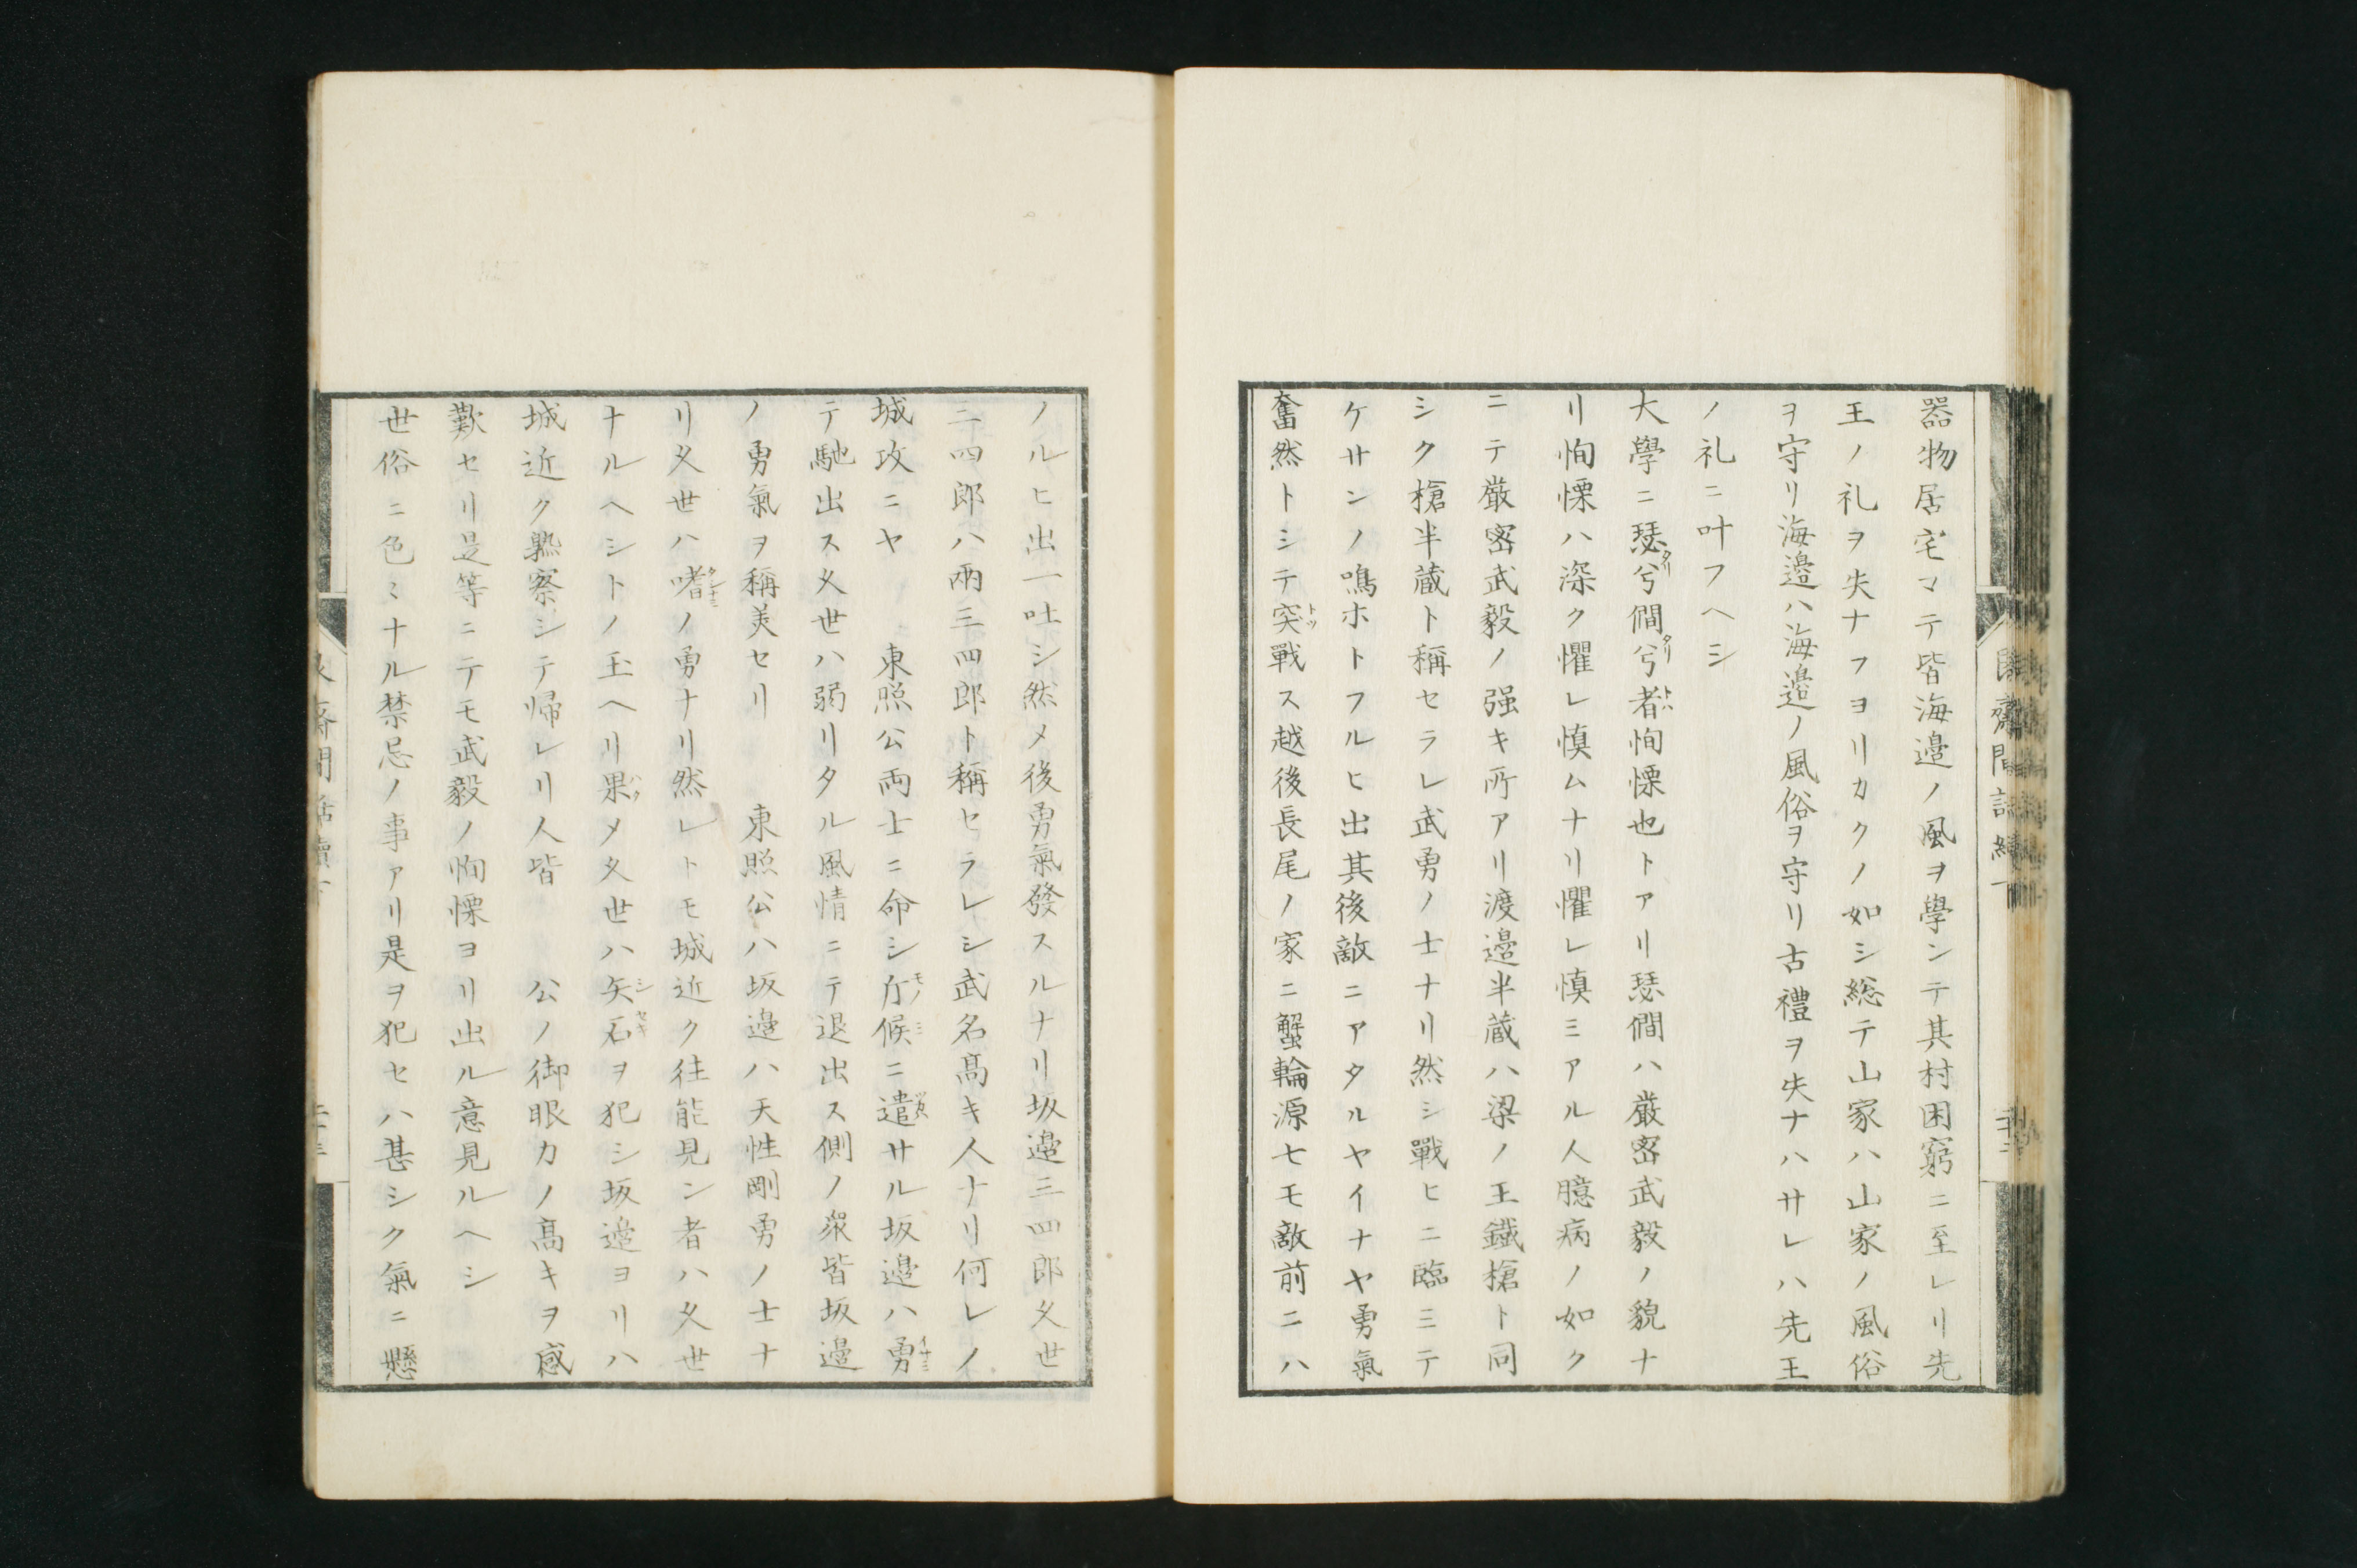 器物居宅マテ皆海邉ノ風ヲ學ンテ其村困窮ニ至レリ先
王ノ礼ヲ失ナフヨリカクノ如シ総テ山家ハ山家ノ風俗
ヲ守リ海邉ハ海邉ノ風俗ヲ守リ古禮ヲ失ナハサレハ先王
ノ礼ニ叶フヘシ
大學ニ瑟兮僴兮者恂慄也トアリ瑟僴ハ厳密武毅ノ貌ナ
リ恂慄ハ深ク懼レ慎ムナリ懼レ慎ミアル人臆病ノ如ク
ニテ厳密武毅ノ强キ所アリ渡邉半蔵ハ梁ノ王鐵槍ト同
シク槍半蔵ト稱セラレ武勇ノ士ナリ然シ戰ヒニ臨ミテ
ケサンノ鳴ホトフルヒ出其後敵ニアタルヤイナヤ勇氣
奮然トシテ突戰ス越後長尾ノ家ニ蟹輪源七モ敵前ニハ
ノルヒ出一吐シ然メ後勇氣發スルナリ坂邉三四郎夂世
三四郎ハ兩三四郎ト稱セラレシ武名髙キ人ナリ何レノ
城攻ニヤ　東照公両士ニ命シ斥候ニ遣サル坂邉ハ勇
テ馳出ス夂世ハ弱リタル風情ニテ退出ス側ノ衆皆坂邉
ノ勇氣ヲ稱美セリ　東照公ハ坂邉ハ天性剛勇ノ士ナ
リ夂世ハ嗜ノ勇ナリ然レトモ城近ク往能見ン者ハ夂世
ナルヘシトノ玉ヘリ果メ夂世ハ矢石ヲ犯シ坂邉ヨリハ
城近ク熟察シテ帰レリ人皆　公ノ御眼カノ髙キヲ感
歎セリ是等ニテモ武毅ノ恂慄ヨリ出ル意見ルヘシ
世俗ニ色〻ナル禁忌ノ事アリ是ヲ犯セハ甚シク氣ニ懸